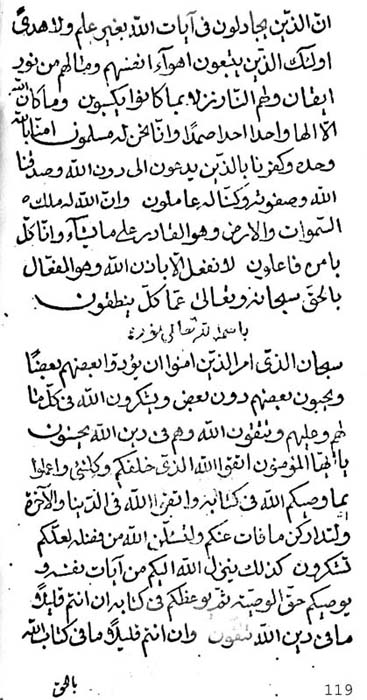 انّ الذين يجادلون فى آيات الله بغير علم ولا هدىً
اولئك الذين يتبعون اهوآء انفسهم ومالهم من نور
ايقان ولهم النار نزلا بما كانوا يكسبون وما كان الله
الا الها واحدا احدا صمدًا وانّا نحن له مسلمون امنّا بالله
وحده وكفرنا بالذين يدعون الى دون الله وصدقنا
الله وصفوته وكنّا له عاملون وانّ الله له ملك
السموات والارض وهو القادر على ما يشآء وانّا كلّ
بامره فاعلون لا نفعل الّا باذن الله وهو الفعّال
بالحقّ سبحانه وتعالى عمّا كلّ ينطقون
باسمه تعالى
سبحان الذى امر الذين امنوا ان يودّوا بعضهم بعضًا
ويحبون بعضهم دون بعض ويشكرون الله فى كلّ ما
لهم وعليهم ويتقون الله وهم فى دين الله يحسنون
يا ايّها المؤمنون اتقوا الله الذى خلقكم وكلشئ واعملوا
بما وصيكم الله فى كتابه واتقوا الله فى الدّنيا والآخرة
ولتداركن ما فات عنكم ولتسئلن الله من فضله لعلّكم
تشكرون كذلك ينزل الله اليكم من آيات نفسه و
يوصيكم حقّ الوصيته ثم يوعظكم فى كتابه ان انتم قليلًا
ما فى دين الله تتقون وان انتم قليلًا ما فى كتاب الله
بالحق
119